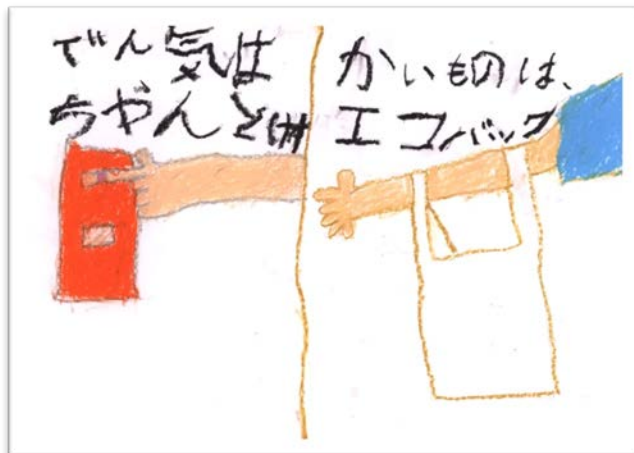 でん気は
ちゃんとけす
かいものは、
エコバック